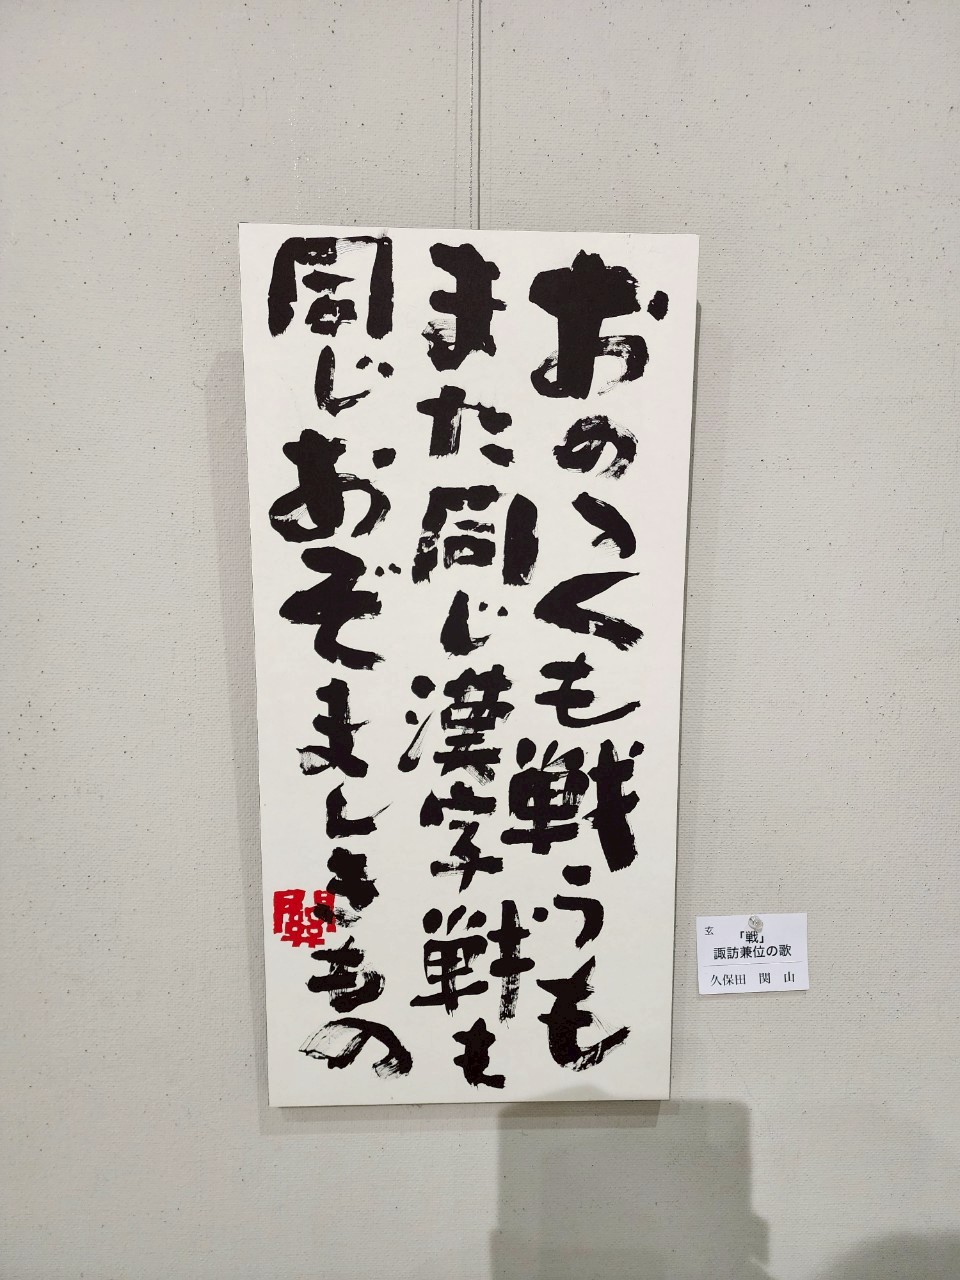 おのゝくも戦うも
また同じ漢字戦も
同じおぞましきもの
関
玄
「戦」
諏訪兼位の歌
久保田 関 山